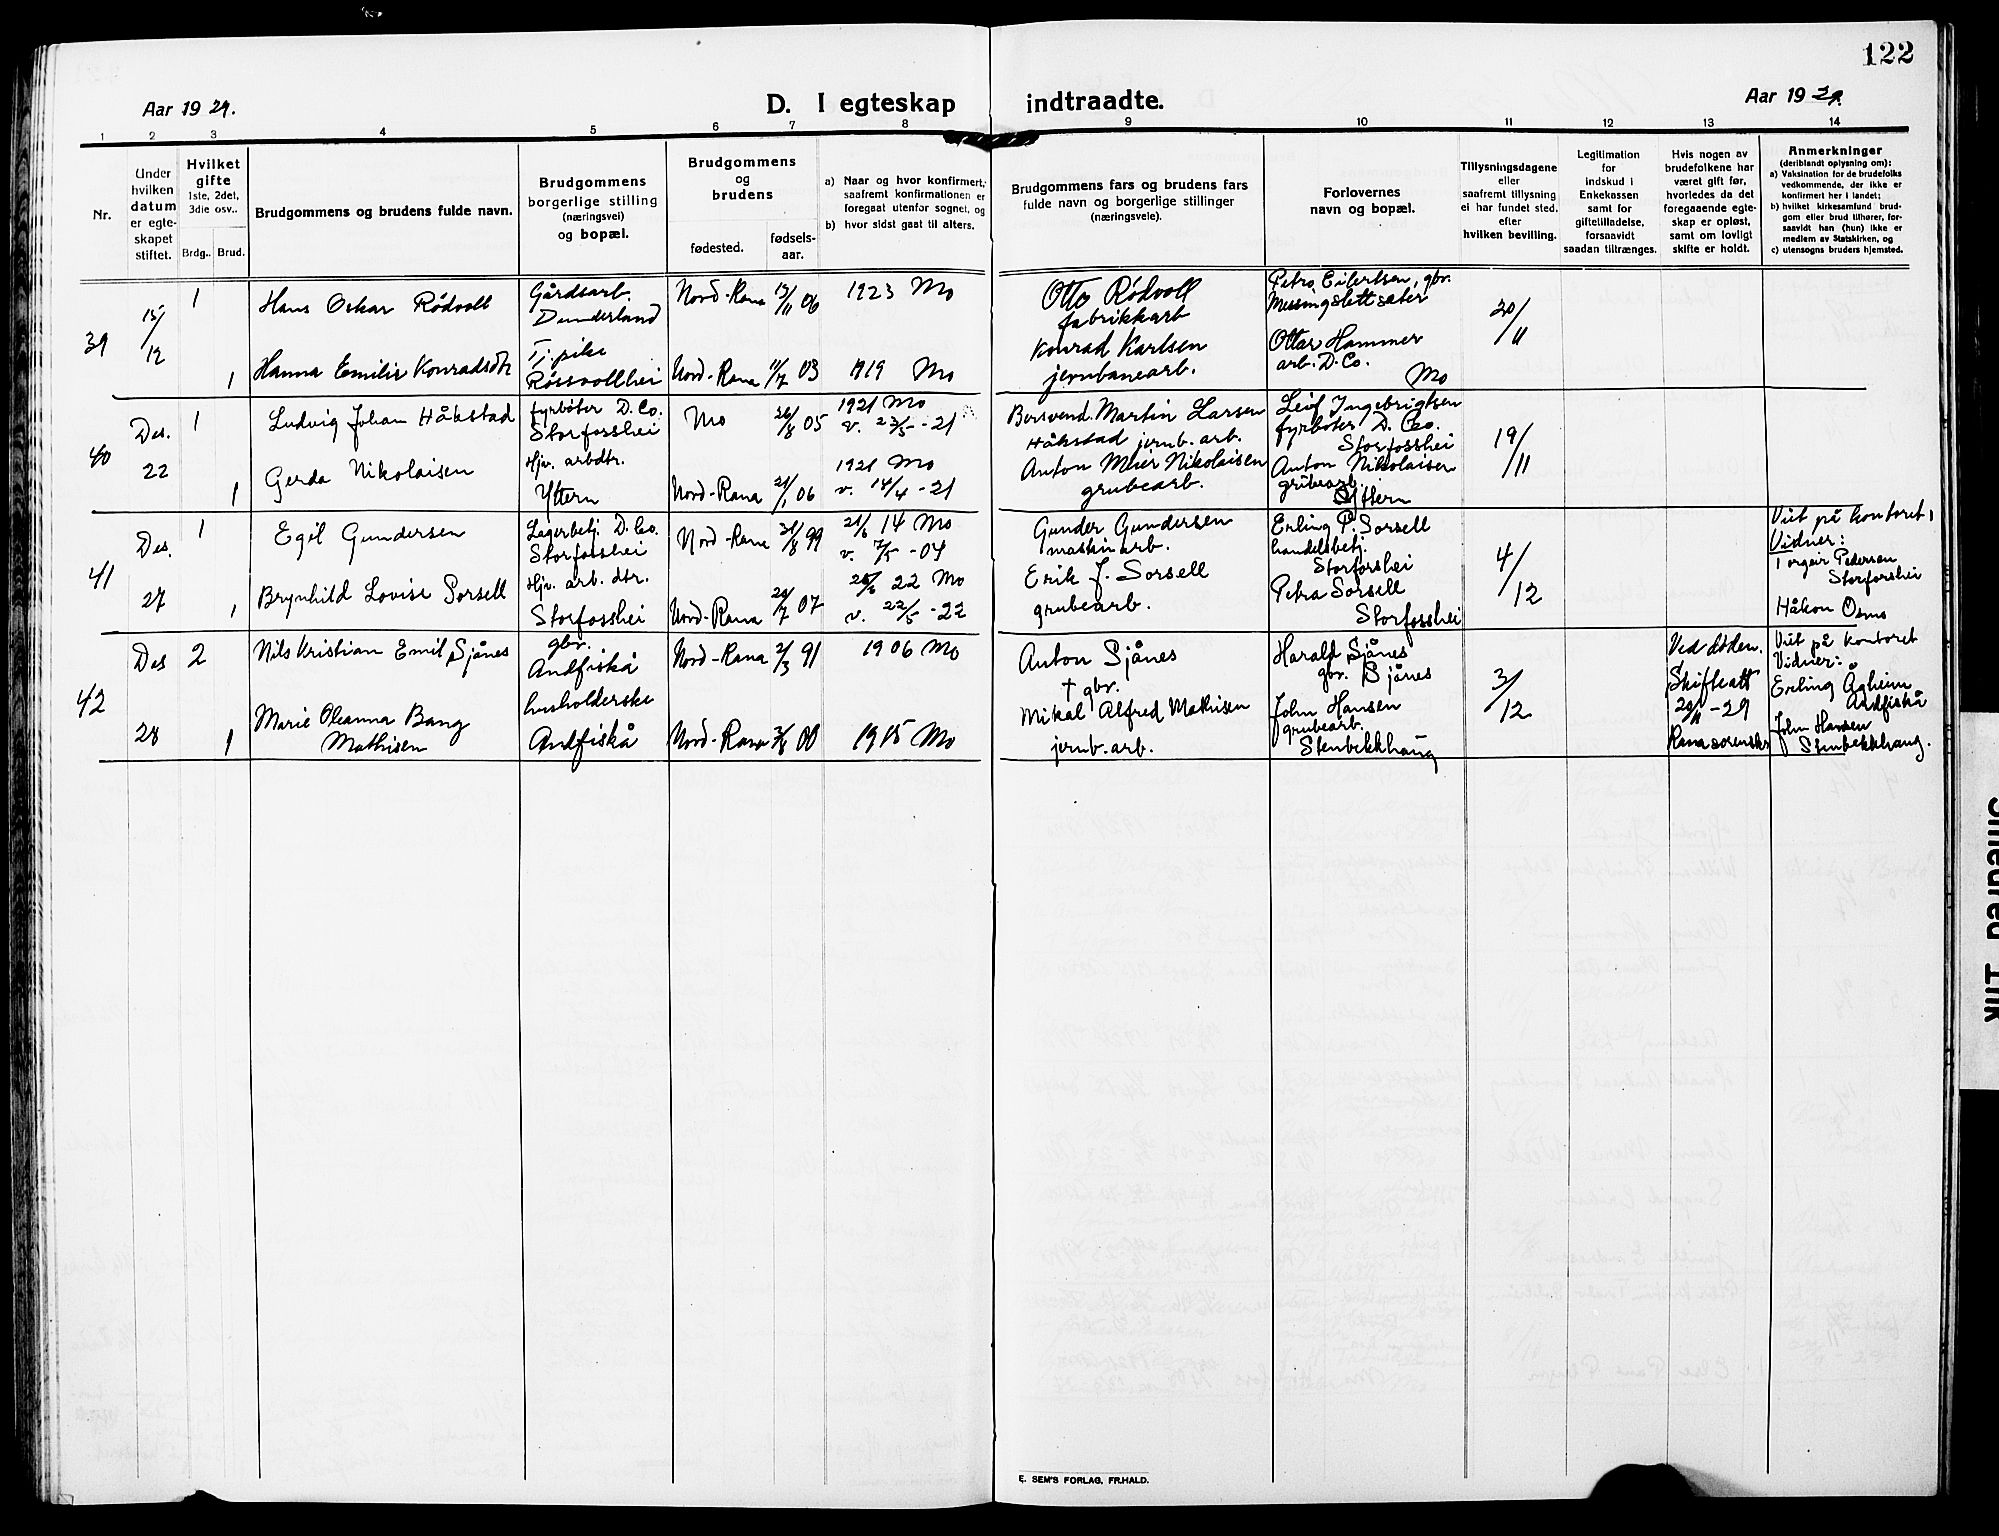 122
Aar 1929.
D. I egteskap indtraadte.
Aar 1929.
1 2 3 4 5 6 7 8 9 10 11 12 13 14
Nr.
Under hvilken datum er egte-skapet stiftet.
Hvilket gifte
1ste, 2det, 3die osv..
Brdg.. Brud.
Brudgommens og brudens fulde navn.
Brudgommens borgerlige stilling (næringsvei) og bopæl.
Brudgommens og brudens
fødested. fødsels-aar.
a) Naar og hvor konfirmert, saafremt konfirmationen er foregaat utenfor sognet, og
b) hvor sidst gaat til alters.
Brudgommens fars og brudens fars fulde navn og borgerlige stillinger (næringsveie).
Forlovernes navn og bopæl.
Tillysningsdagene eller saafremt tillysning ei har fundet sted, efter hvilken bevilling.
Legitimation for indskud i Enkekassen samt for giftetilladelse, forsaavidt saadan tiltrænges.
Hvis nogen av brudefolkene har været gift før, hvorledes da det foregaaende egte-skap er opløst, samt om lovligt skifte er holdt.
Anmerkninger
(deriblandt oplysning om):
a) Vaksination for de brudefolks vedkommende, der ikke er konfirmert her i landet;
b) hvilket kirkesamfund brud-gom eller brud tilhører, for-saavidt han (hun) ikke er medlem av Statskirken, og
c) utensogns bruders hjemsted.
39
15/12
1
Hans Oskar Rödvoll
Gårdsarb.
Dunderland
Nord-Rana 13/11 06
1923 Mo
Otto Rödvoll
fabrikkarb
Petro Eilertsen, gbr.
Messingslettsæter
20/11
1
Hanna Emilie Konradsdtr
Tj. pike
Røssvollhei
Nord-Rana 11/7 03
1919 Mo
Konrad Karlsen
jernbanearb.
Ottar Hammer
arb. D. Co.
Mo
40
Des. 22
1
Ludvig Johan Håkstad
fyrböter D. Co.
Storforshei
Mo 26/8 05
1921 Mo
v. 23/5 -21
Bersvend Martin Larsen
Håkstad jernb. arb.
Leif Ingebrigtsen
fyrböter D. Co.
Storfosshei
19/11
1
Gerda Nikolaisen
Hjv. arbdtr.
Yttern
Nord-Rana 21/1 06
1921 Mo
v. 14/4 -21
Anton Meier Nikolaisen
grubearb.
Anton Nikolaisen
grubearb.
Yttern
41
Des. 27
1
Egil Gundersen
Lagerbetj. D. Co.
Storfosshei
Nord-Rana 31/8 99
21/6 14 Mo
v. 7/5 -04
Gunder Gundersen
maskinarb.
Erling P. Sorsell
handelsbetj.
Storforshei
4/12
Viet på kontoret,
Vidner:
Torgeir Pedersen
Storforshei
1
Brynhild Lovise Sorsell
Hjv. arb. dtr.
Storfosshei
Nord-Rana 24/7 07
25/6 22 Mo
v. 22/5 -22
Erik J. Sorsell
grubearb.
Petra Sorsell
Storfosshei
Håkon Osmo
42
Des 28
2
Nils Kristian Emil Sjånes
gbr.
Andfiskå
Nord-Rana 2/3 91
1906 Mo
Anton Sjånes
† gbr.
Harald Sjånes
gbr. Sjånes
3/12
Ved döden.
Skifteatt
20/11 -29
Rana sorenskr
Viet på kontoret
Vidner:
Erling Ågheim
Andfiskå
1
Marie Oleanna Bang
Mathisen
husholderske
Andfiskå
Nord-Rana 00
1915 Mo
Mikal Alfred Mathisen
jernb. arb.
John Hansen
grubearb.
Stenbekkhaug
John Hansen
Stenbekkhaug.
E. SEM'S FORLAG, FR.HALD.